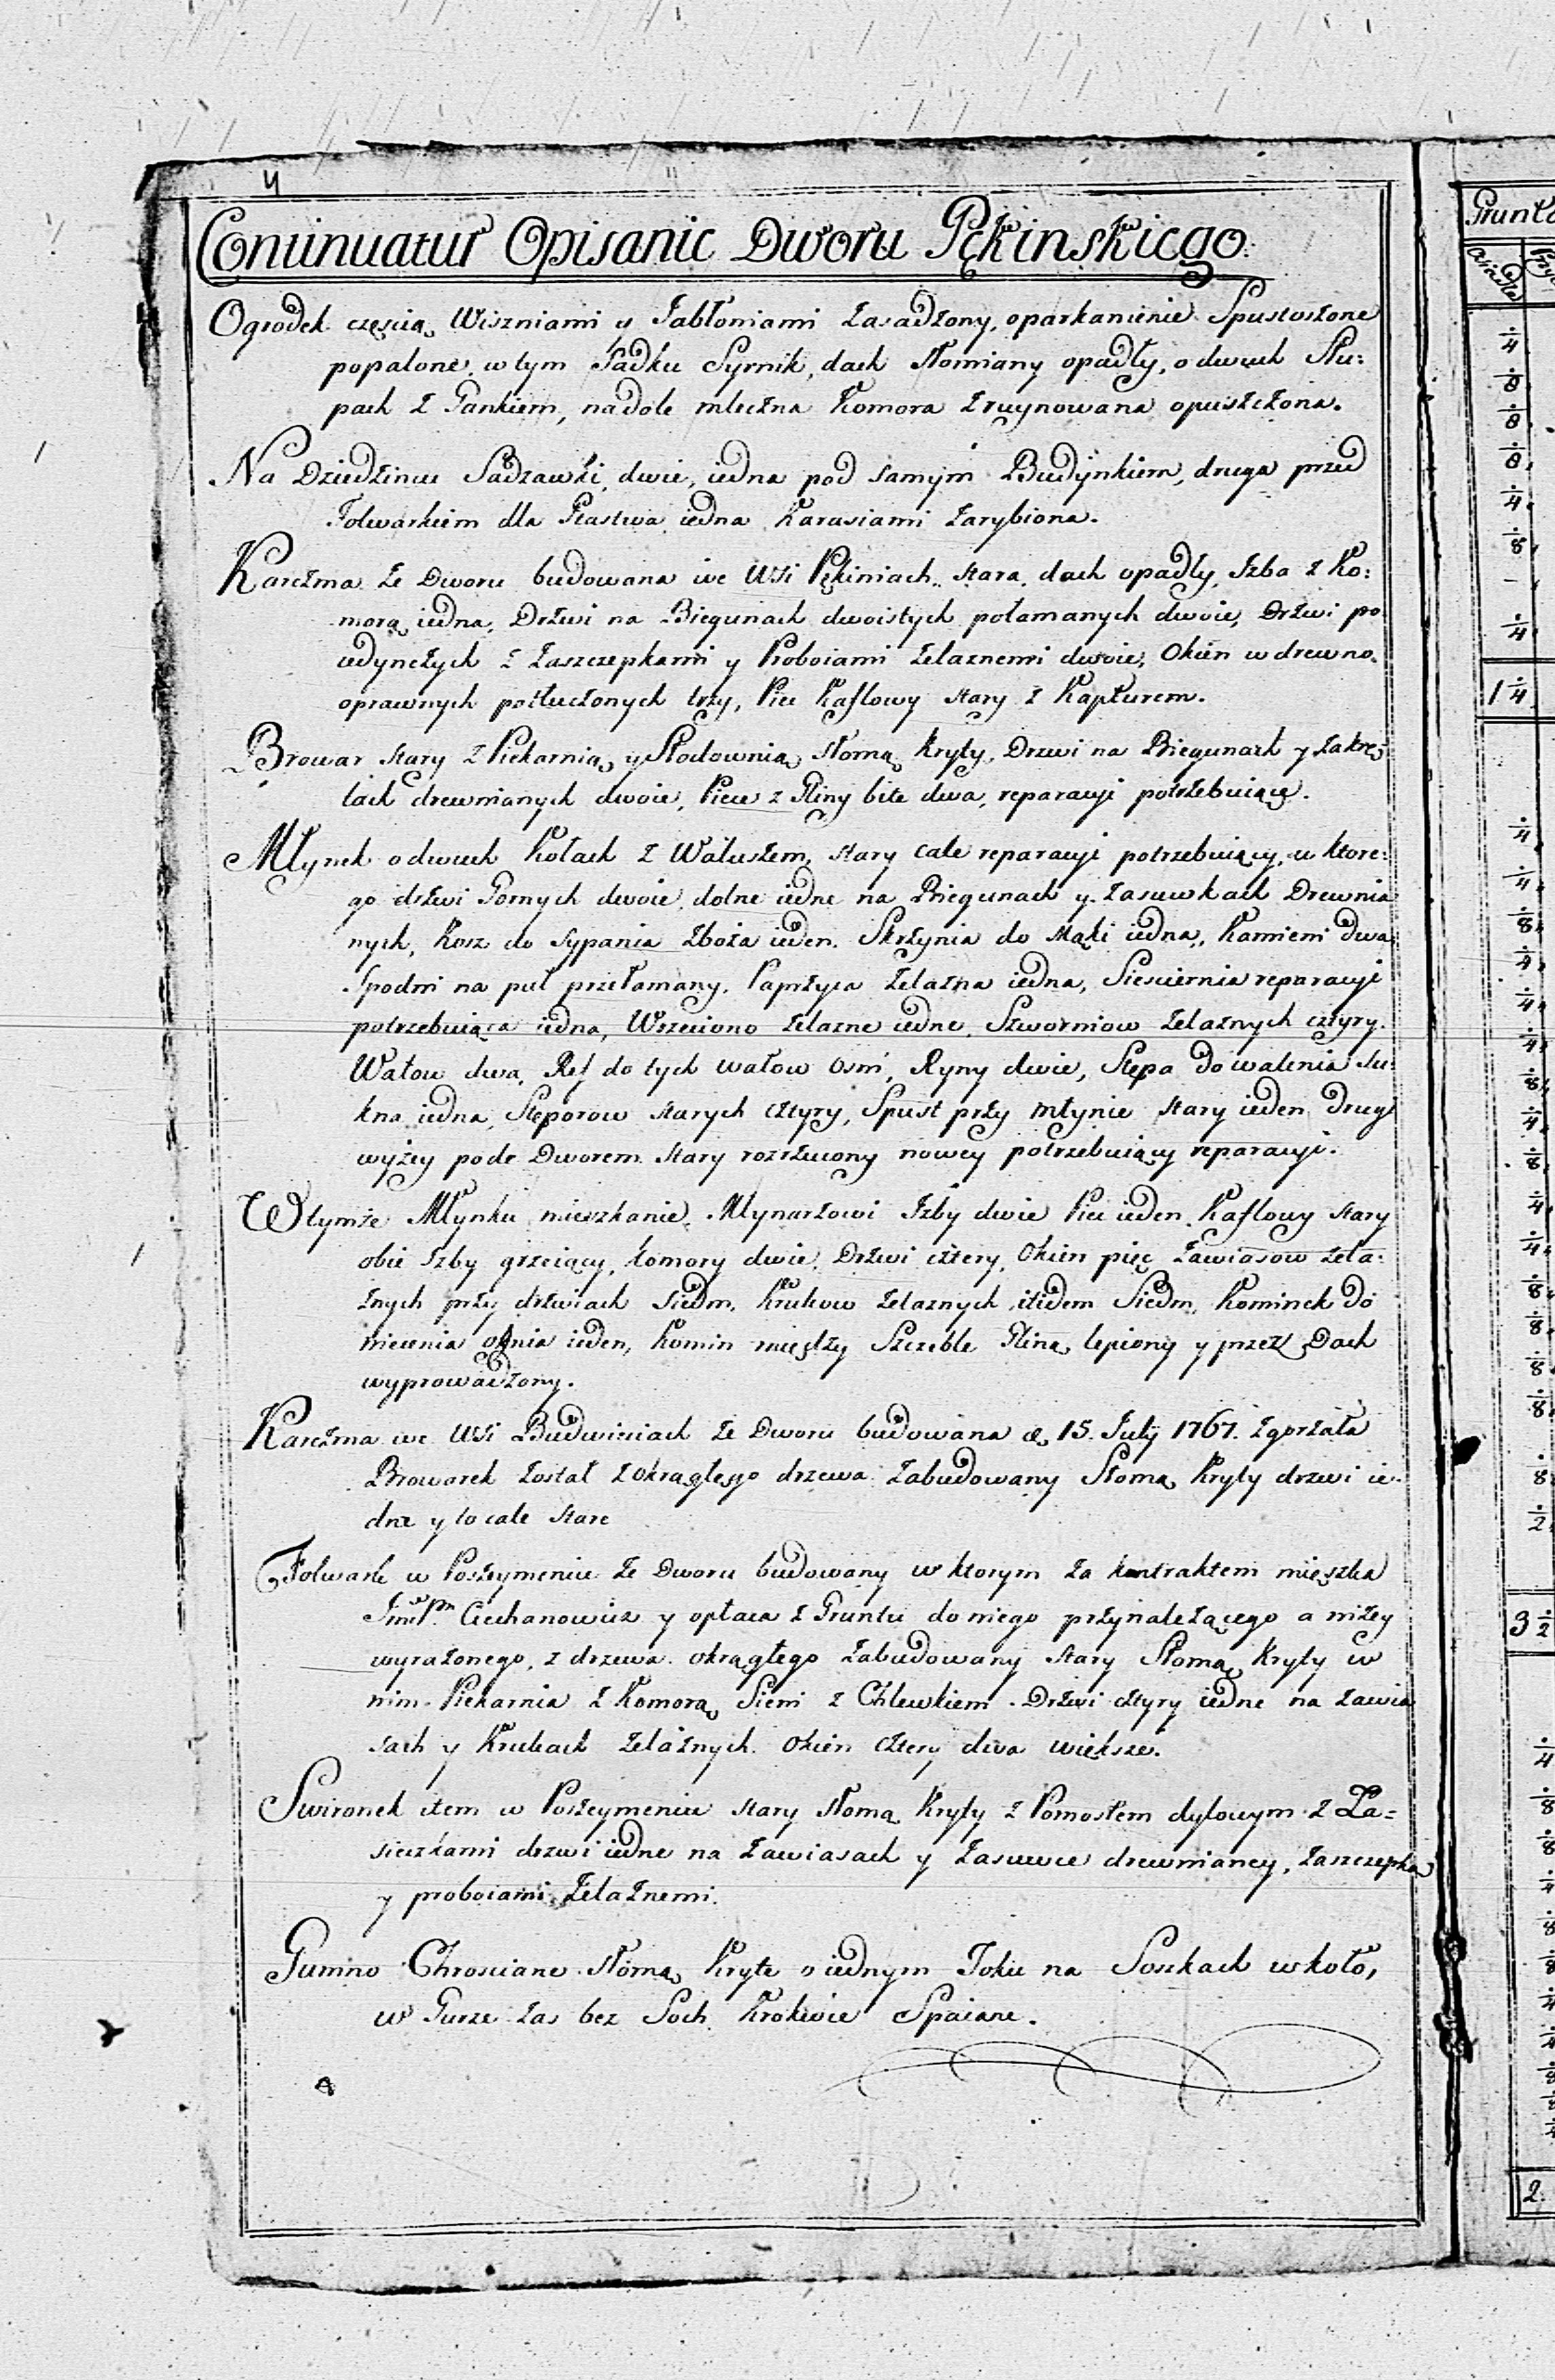 4
Continuatur Opisanie Dworu Pękinskiego.
Ogrodek częscią Wiszniami y Jabłoniami zasadzony, oparkanienie Spustoszone
popalone, w tym Sadku Syrnik, dach słomiany opadły, o dwuch Słu:
pach z Gankiem, na dole mleczna Komora zruynowana opuszczona.
Na Dziedzincu Sadzawki dwie, iedna pod samym Budynkiem, druga przed
Folwarkiem dla Ptastwa iedna Karasiami zarybiona.
Karczma ze Dworu budowana we Wsi Pękiniach stara, dach opadły, Izba z Ko:
morą iedna, Drzwi na Biegunach dwoistych połamanych dwoie, Drzwi po
iedynczych z Zaszczepkami y Proboiami żelaznemi dwoie, Okien w drewno
oprawnych potłuczonych trzy, Piec Kaflowy stary z Kapturem.
Browar stary z Piekarnią y Słodownią słomą kryty, Drzwi na Biegunach y Zakrę
tach drewnianych dwoie, Piece z Gliny bite dwa, reparacyi potrzebuiące.
Młynek o dwuch Kołach z Waluszem, stary cale reparacyi potrzebuiący, u ktore:
go drzwi Gornych dwoie, dolne iedne na Biegunach y zasuwkach Drewnia
nych, Kosz do sypania zboża ieden. Skrzynia do Mąki iedna, Kamieni dwa
Spodni na puł przełamany, Paprzyca żelazna iedna, Siesciernia reparacyi
potrzebuiąca iedna, Wrzeciono żelazne iedne, Sworniow żelaznych cztyry.
Wałow dwa, Ref do tych wałow osm, Ryny dwie, Stępa do walenia su:
kna iedna, Stęporow starych cztyry, Spust przy młynie stary ieden drugi
wyżey pode Dworem stary rozrzucony nowey potrzebuiący reparacyi.
W tymże Młynku mieszkanie Młynarzowi Izby dwie Piec ieden Kaflowy stary
obie Izby grzeiący, komory dwie, Drzwi cztery, Okien pięc Zawiasow żela:
znych przy drzwiach siedm, Krukow żelaznych itidem Siedm, Kominek do
niecenia ognia ieden, Komin między Szczeble Gliną lepiony y przez Dach
wyprowadzony.
Karczma we Wsi Budwieciach ze Dworu budowana 15. July 1767. zgorzała
Browarek został z okrągłego drzewa zabudowany Słomą Kryty drzwi ie:
dne y to cale stare
Folwark w Poszeymeniu ze Dworu budowany w ktorym za kontraktem mięszka
Jmć Pn Ciechanowicz y opłaca z Gruntu do niego przynależącego a niżey
wyrażonego, z drzewa okrągłego zabudowany stary Słomą Kryty w
nim Piekarnia z Komorą Sieni z Chlewkiem. Drzwi cztyry iedne na zawia
sach y Krukach żelaznych. Okien cztery dwa większe.
Swironek item w Poszeymeniu stary słomą Kryty z Pomostem dylowym z Za=
sieczkami drzwi iedne na zawiasach y zasuwce drewnianey, zaszczepką
y proboiami żelaznemi.
Gumno Chrosciane słomą Kryte o iednym Toku na Soszkach w koło,
w Gurze zas bez Soch Krokwie Spaiane.
Grunta
osiadłe